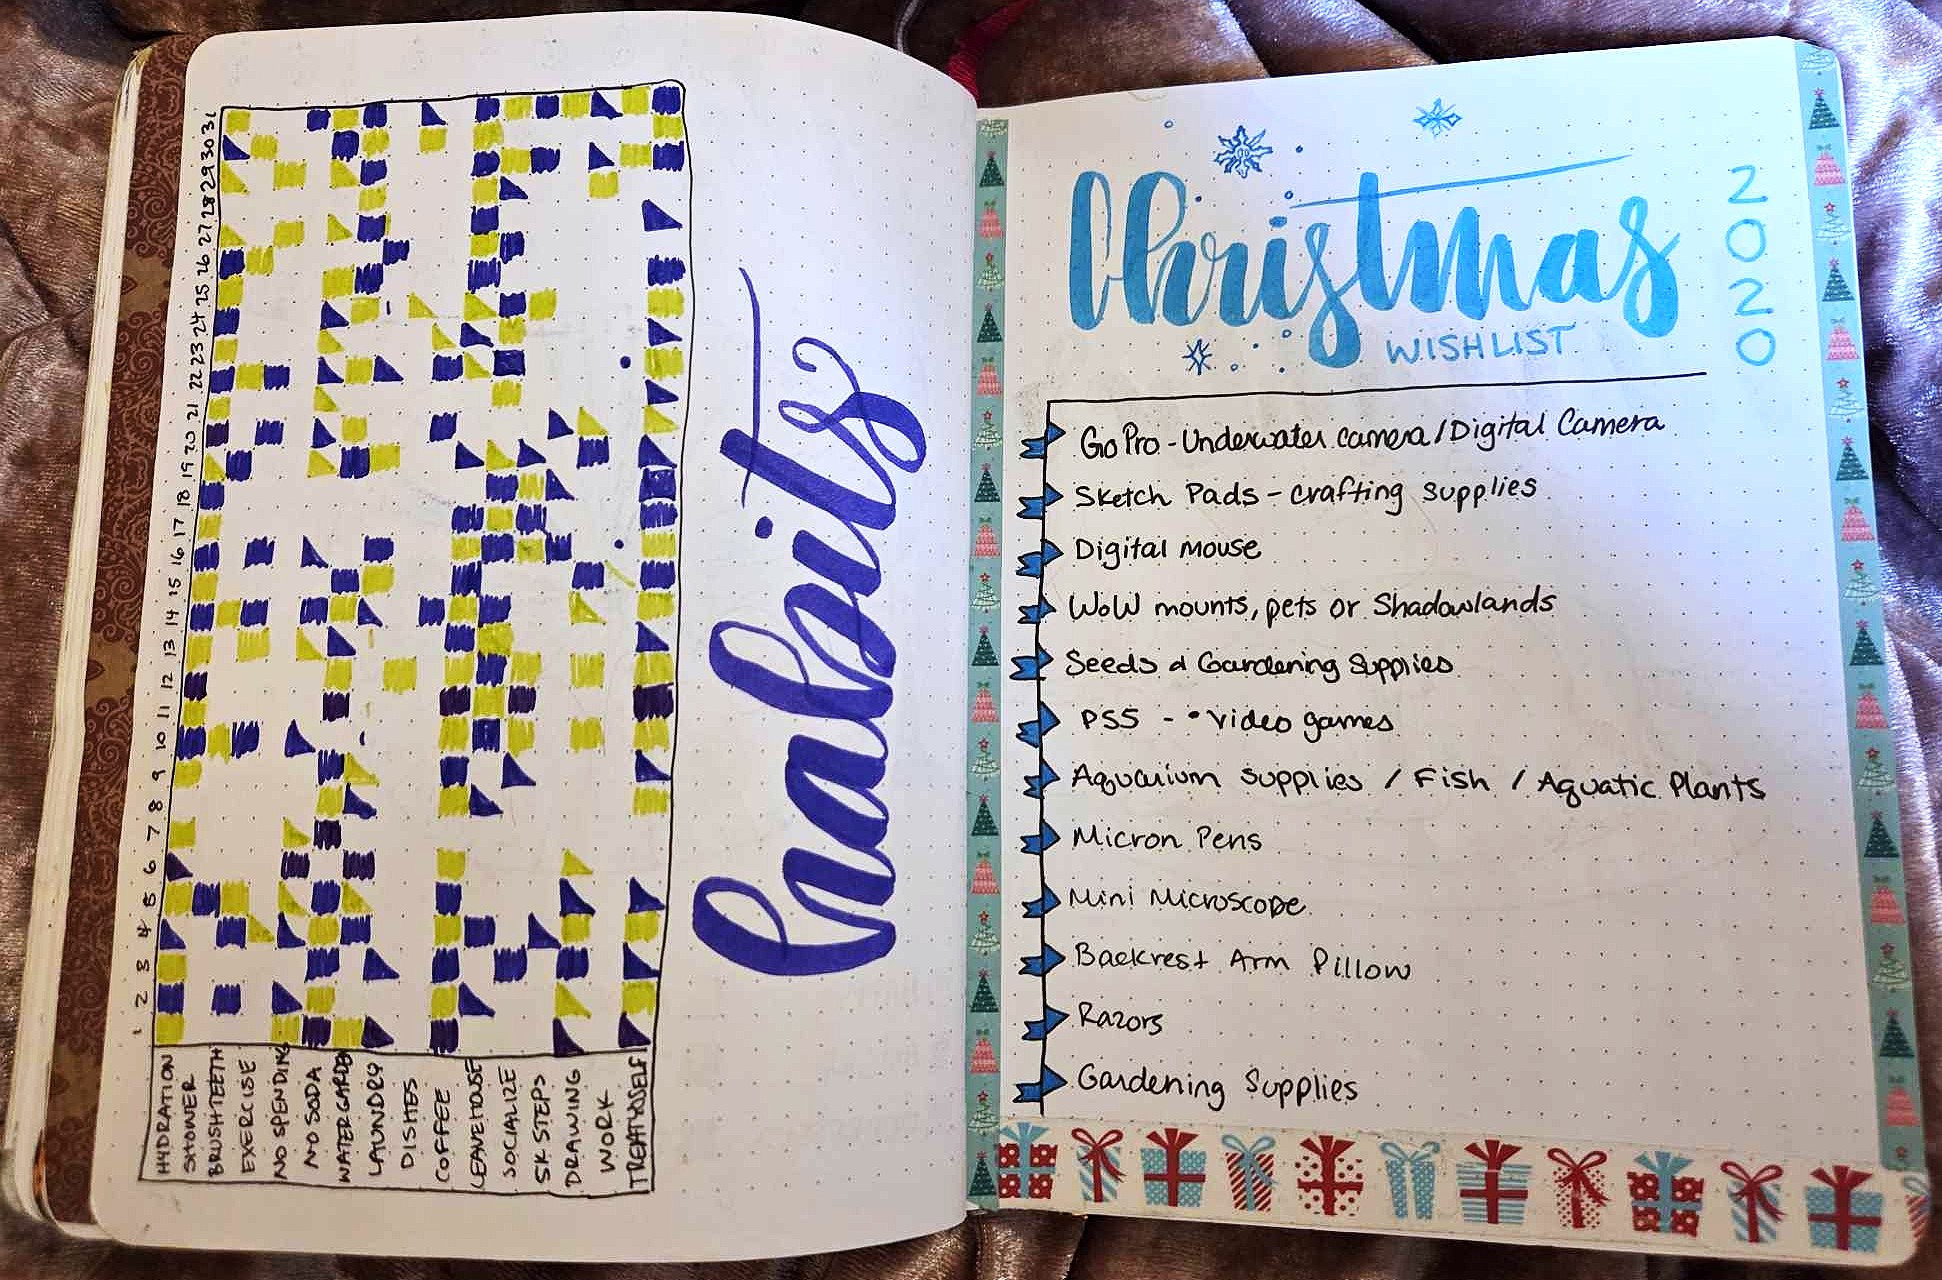 habits
1 2 3 4 5 6 7 8 9 10 11 12 13 14 15 16 17 18 19 20 21 22 23 24 25 26 27 28 29 30 31
HYDRATION
SHOWER
BRUSH TEETH
EXERCISE
NO SPENDING
NO SODA
WATER GARDEN
LAUNDRY
DISHES
COFFEE
LEAVE HOUSE
SOCIALIZE
5K STEPS
DRAWING
WORK
TREATYOSELF
Christmas
WISHLIST
2020
GoPro - Underwater camera / Digital Camera
Sketch Pads - crafting supplies
Digital mouse
WoW mounts, pets or Shadowlands
Seeds & Gardening Supplies
PS5 - • video games
Aquarium supplies / Fish / Aquatic Plants
Micron Pens
Mini Microscope
Backrest Arm Pillow
Razors
Gardening Supplies